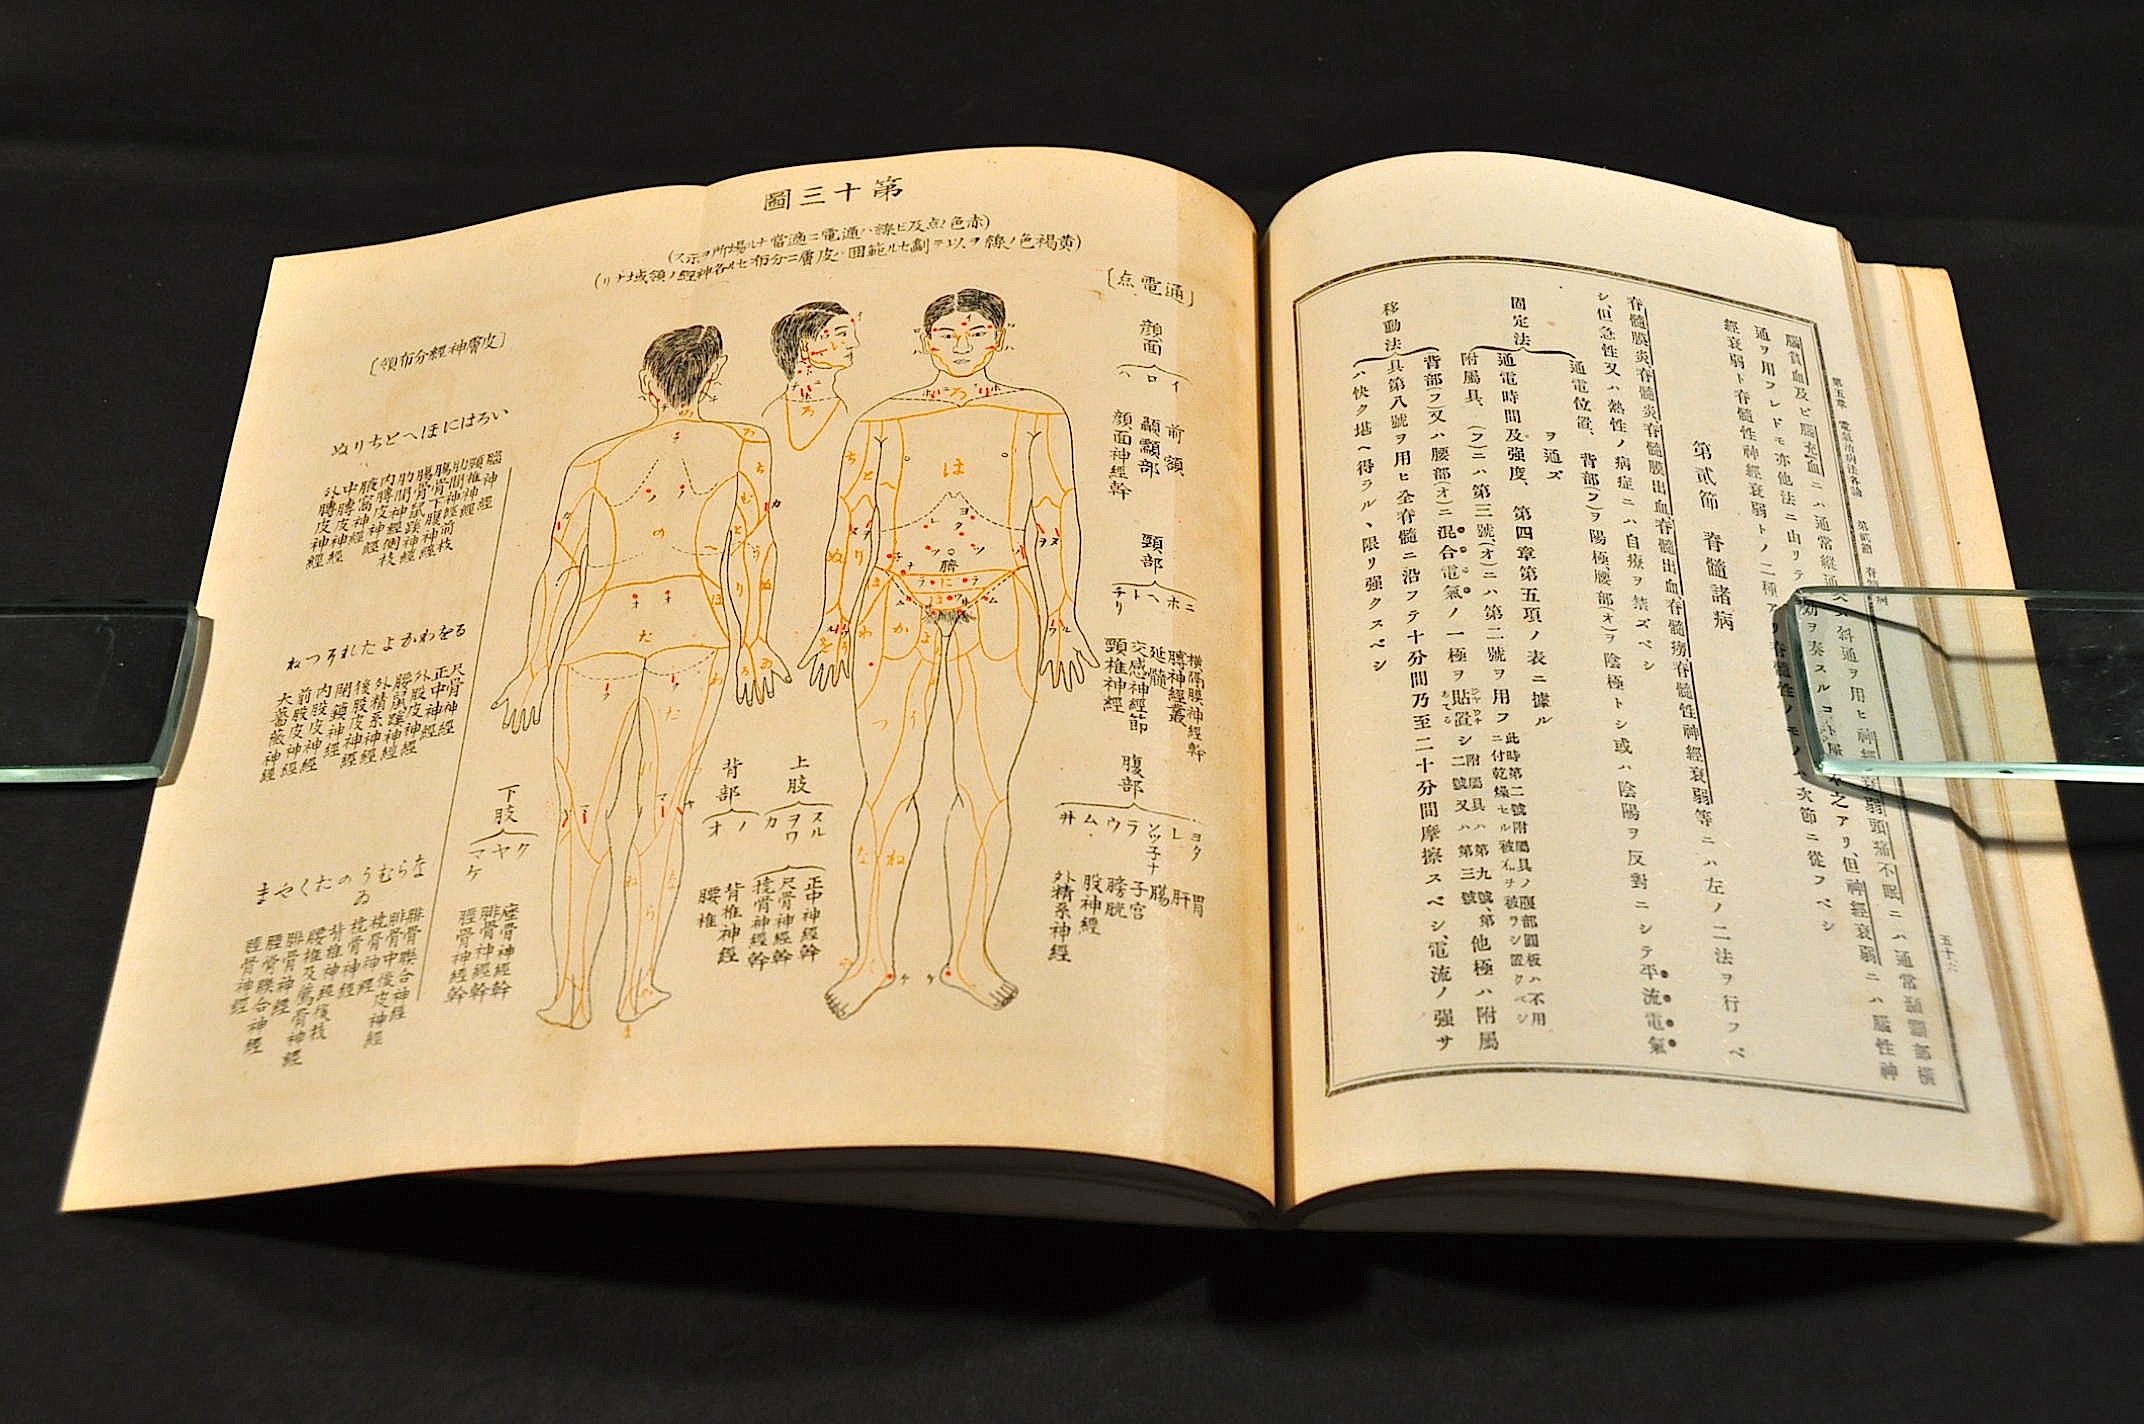 第五章 電氣治病法各論 第貳節 脊髓病
五十六
腦貧血及ビ腦充血ニハ通常縱通又ハ斜通ヲ用ヒ神經衰弱頭痛不眠ニハ通常顳顬部橫
通ヲ用フレドモ亦他法ニ由リテ
之アリ、但神經衰弱ニハ腦性神
經衰弱ト脊髓性神經衰弱トノ二種アリ脊髓性ノモノハ次節ニ從フベシ
第貳節 脊髓諸病
脊髓膜炎脊髓炎脊髓膜出血脊髓出血脊髓癆脊髓性神經衰弱等ニハ左ノ二法ヲ行フベ
シ、但急性又ハ熱性ノ病症ニハ自療ヲ禁ズベシ
固定法
通電位置、背部(フ)ヲ陽極、腰部(オ)ヲ陰極トシ或ハ陰陽ヲ反對ニシテ平流電氣
ヲ通ズ
通電時間及强度、第四章第五項ノ表ニ據ル
附屬具、(フ)ニハ第三號(オ)ニハ第二號ヲ用フ
此時第二號附屬具ノ腹部圓板ハ不用
ニ付乾燥セル被布ヲ被ヲシ置クベシ
移動法
背部(フ)又ハ腰部(オ)ニ混合電氣ノ一極ヲ貼置シ
二號又ハ第三號
他極ハ附屬
具第八號ヲ用ヒ全脊髓ニ沿フテ十分間乃至二十分間摩擦スベシ、電流ノ强サ
ハ快ク堪ヘ得ラルヽ限リ强クスベシ
第十三圖
(赤色ノ点及ビ線ハ通電ニ適當ナル場所ヲ示ス)
(黃褐色ノ線ヲ以テ劃セル範囲ハ皮膚ニ分布セル各神經ノ領域ナリ)
〔通電点〕
顔面
イ 前額
ロ 顳顬部
ハ 顔面神經幹
頸部
ニ 橫隔膜神經幹
ホ 膊神經叢
ヘ 延髓
ト 交感神經節
チリ 頸椎神經
腹部
ヨタ 胃
レ 肝
ソツ子ナ 腸
ラ 子宮
ウ 膀胱
ム 股神經
井 外精系神經
上肢
スル 正中神經幹
ヲワ 尺骨神經幹
カ 撓骨神經幹
背部
ノ 背椎神經
オ 腰椎
下肢
ク 座骨神經幹
ヤ 腓骨神經幹
マケ 脛骨神經幹
〔皮膚神經分布領〕
いろはにほへとちりぬ
腦神經
頸椎神經
肋間神經前枝
腸骨下腹神經
腸骨鼠蹊神經
肋間神經側枝
內膊皮神經
腋窩神經
中膊皮神經
外膊皮神經
るをわかよたれそつね
尺骨神經
正中神經
外股皮神經
腰鼠蹊神經
外精系神經
後股皮神經
閉鎖神經
內股皮神經
前股皮神經
大薔薇神經
ならむうゐのたくやま
腓骨聯合神經
腓骨中後皮神經
撓骨神經
背椎神經後枝
腰椎及薦骨神經
腓骨神經
脛骨聯合神經
脛骨神經
臍